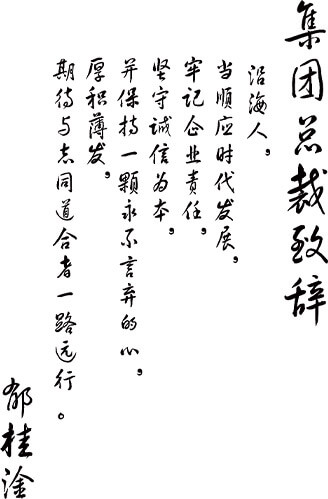 集团总裁致辞
沿海人，
当顺应时代发展，
牢记企业责任，
坚守诚信为本，
并保持一颗永不言弃的心，
厚积薄发，
期待与志同道合者一路远行。
郁桂淦